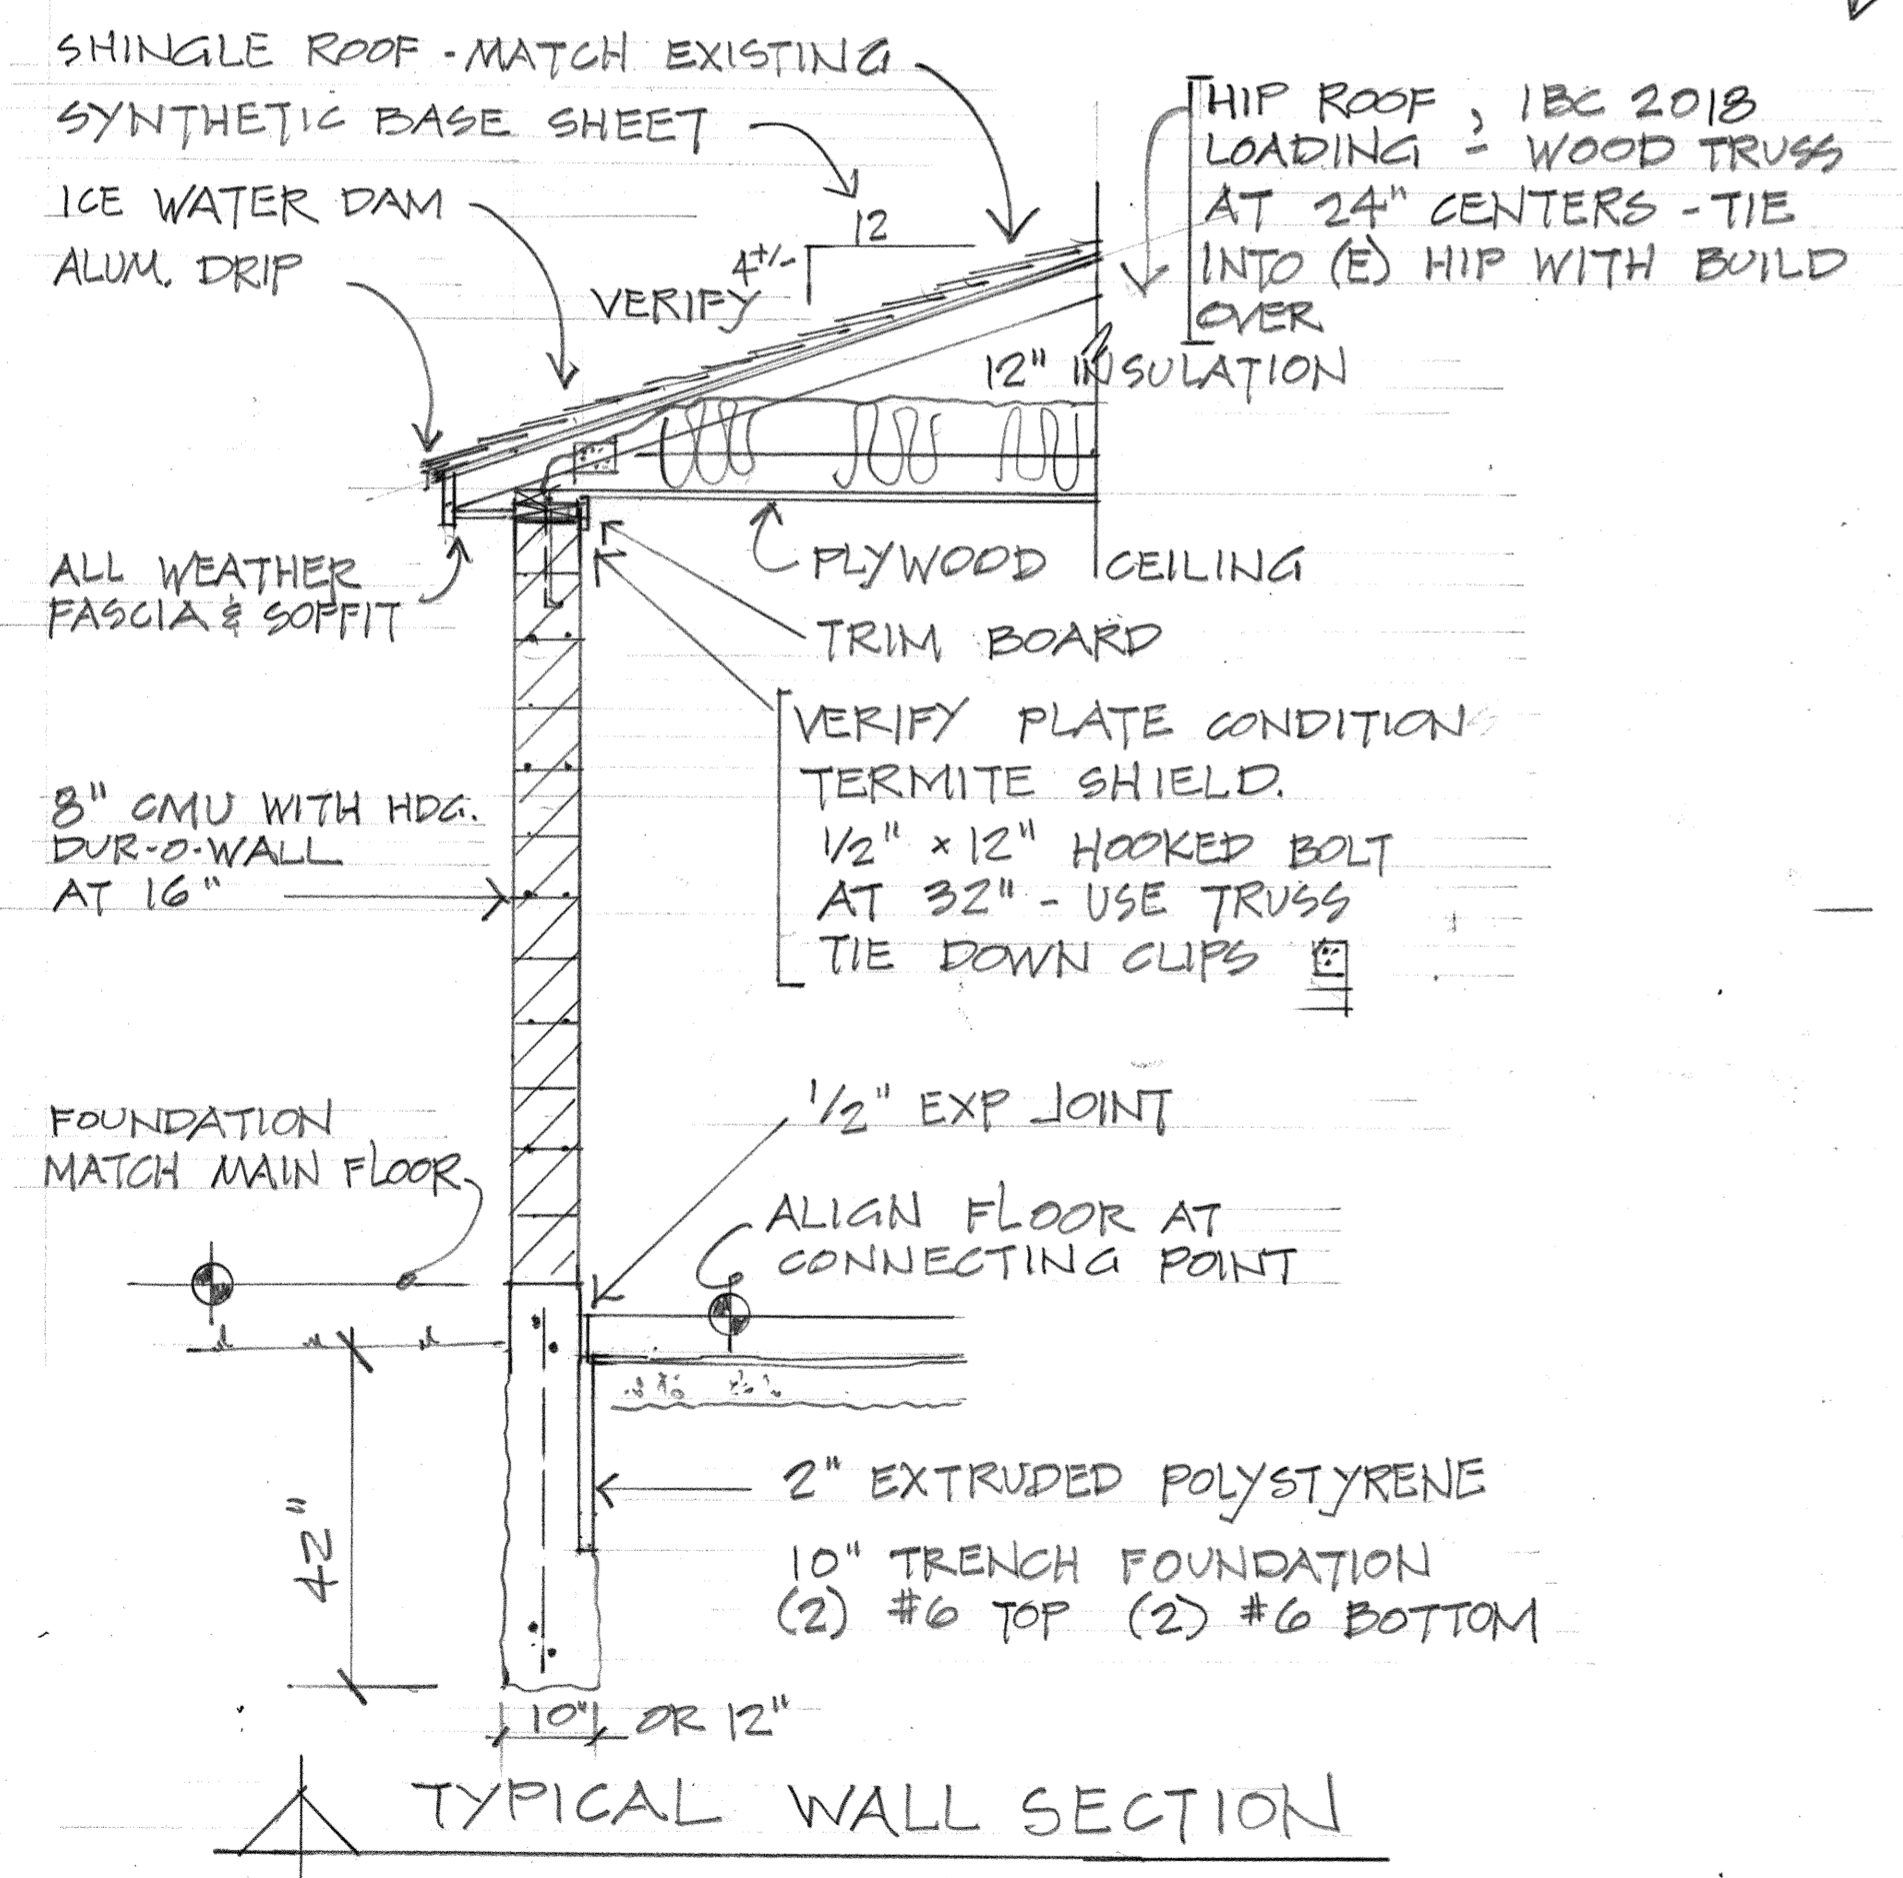 SHINGLE ROOF - MATCH EXISTING
SYNTHETIC BASE SHEET
ICE WATER DAM
ALUM. DRIP
HIP ROOF, IBC 2018
LOADING - WOOD TRUSS
AT 24" CENTERS - TIE
INTO (E) HIP WITH BUILD
OVER
12
4+/-
VERIFY
12" INSULATION
ALL WEATHER
FASCIA & SOFFIT
PLYWOOD CEILING
TRIM BOARD
VERIFY PLATE CONDITION
TERMITE SHIELD.
1/2" x 12" HOOKED BOLT
AT 32" - USE TRUSS
TIE DOWN CLIPS
8" CMU WITH HDG.
DUR-O-WALL
AT 16"
FOUNDATION
MATCH MAIN FLOOR
1/2" EXP JOINT
ALIGN FLOOR AT
CONNECTING POINT
42"
2" EXTRUDED POLYSTYRENE
10" TRENCH FOUNDATION
(2) #6 TOP (2) #6 BOTTOM
10" OR 12"
TYPICAL WALL SECTION